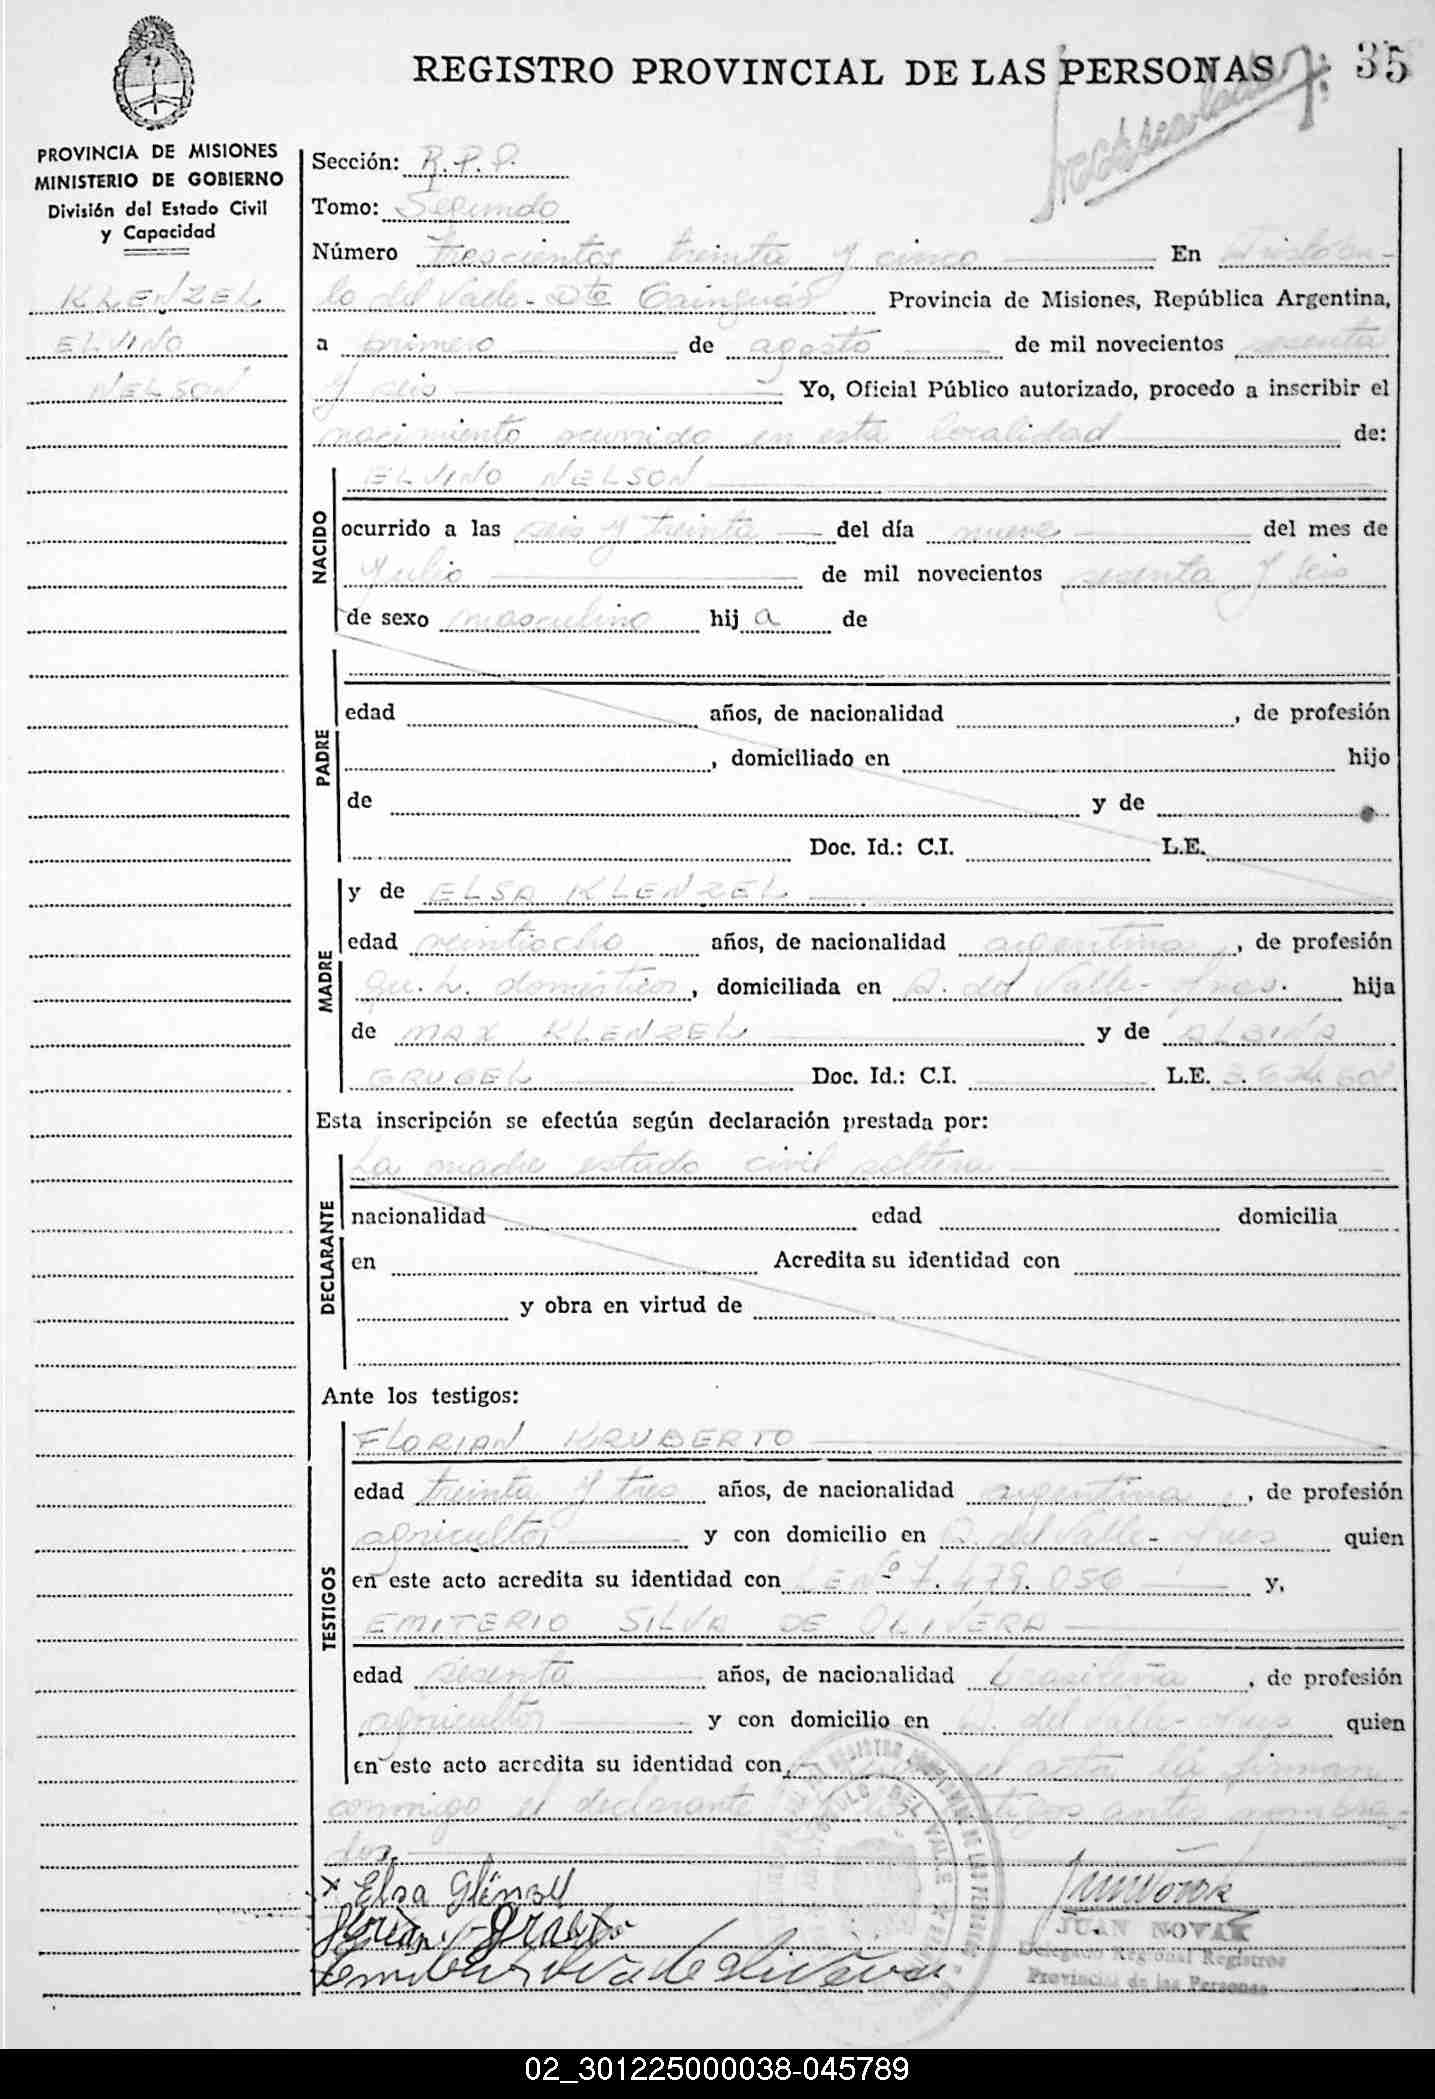 REGISTRO PROVINCIAL DE LAS PERSONAS
35
PROVINCIA DE MISIONES
MINISTERIO DE GOBIERNO
División del Estado Civil
y Capacidad
KLENZEL
ELVINO
NELSON
Sección: R.P.P.
Tomo: Segundo
Número trescientos treinta y cinco En Aristóbu-
lo del Valle - Dto Cainguás Provincia de Misiones, República Argentina,
a primero de agosto de mil novecientos sesenta
y seis Yo, Oficial Público autorizado, procedo a inscribir el
nacimiento ocurrido en esta localidad de:
NACIDO
ELVINO NELSON
ocurrido a las seis y treinta del día nueve del mes de
Julio de mil novecientos sesenta y seis
de sexo masculino hij a de
PADRE
edad años, de nacionalidad , de profesión
, domiciliado en hijo
de y de
Doc. Id.: C.I. L.E.
MADRE
y de ELSA KLENZEL
edad veintiocho años, de nacionalidad argentina, de profesión
qu. h. domésticos, domiciliada en A. del Valle - Mnes. hija
de MAX KLENZEL y de ALBINA
GRUGEL Doc. Id.: C.I. L.E.
Esta inscripción se efectúa según declaración prestada por:
DECLARANTE
La madre estado civil soltera
nacionalidad edad domicilia
en Acredita su identidad con
y obra en virtud de
Ante los testigos:
TESTIGOS
FLORIAN KRUBERTO
edad treinta y tres años, de nacionalidad argentina, de profesión
agricultor y con domicilio en A. del Valle - Mnes quien
en este acto acredita su identidad con LE Nº 7.479.056 y,
EMITERIO SILVA DE OLIVERA
edad sesenta años, de nacionalidad brasileña, de profesión
agricultor y con domicilio en A. del Valle - Mnes quien
en este acto acredita su identidad con el acta la firman
conmigo el declarante testigos antes nombra-
dos.
x Elsa Glénzel
JUAN NOVAK
Delegado Regional Registros
Provincial de las Personas
02_301225000038-045789